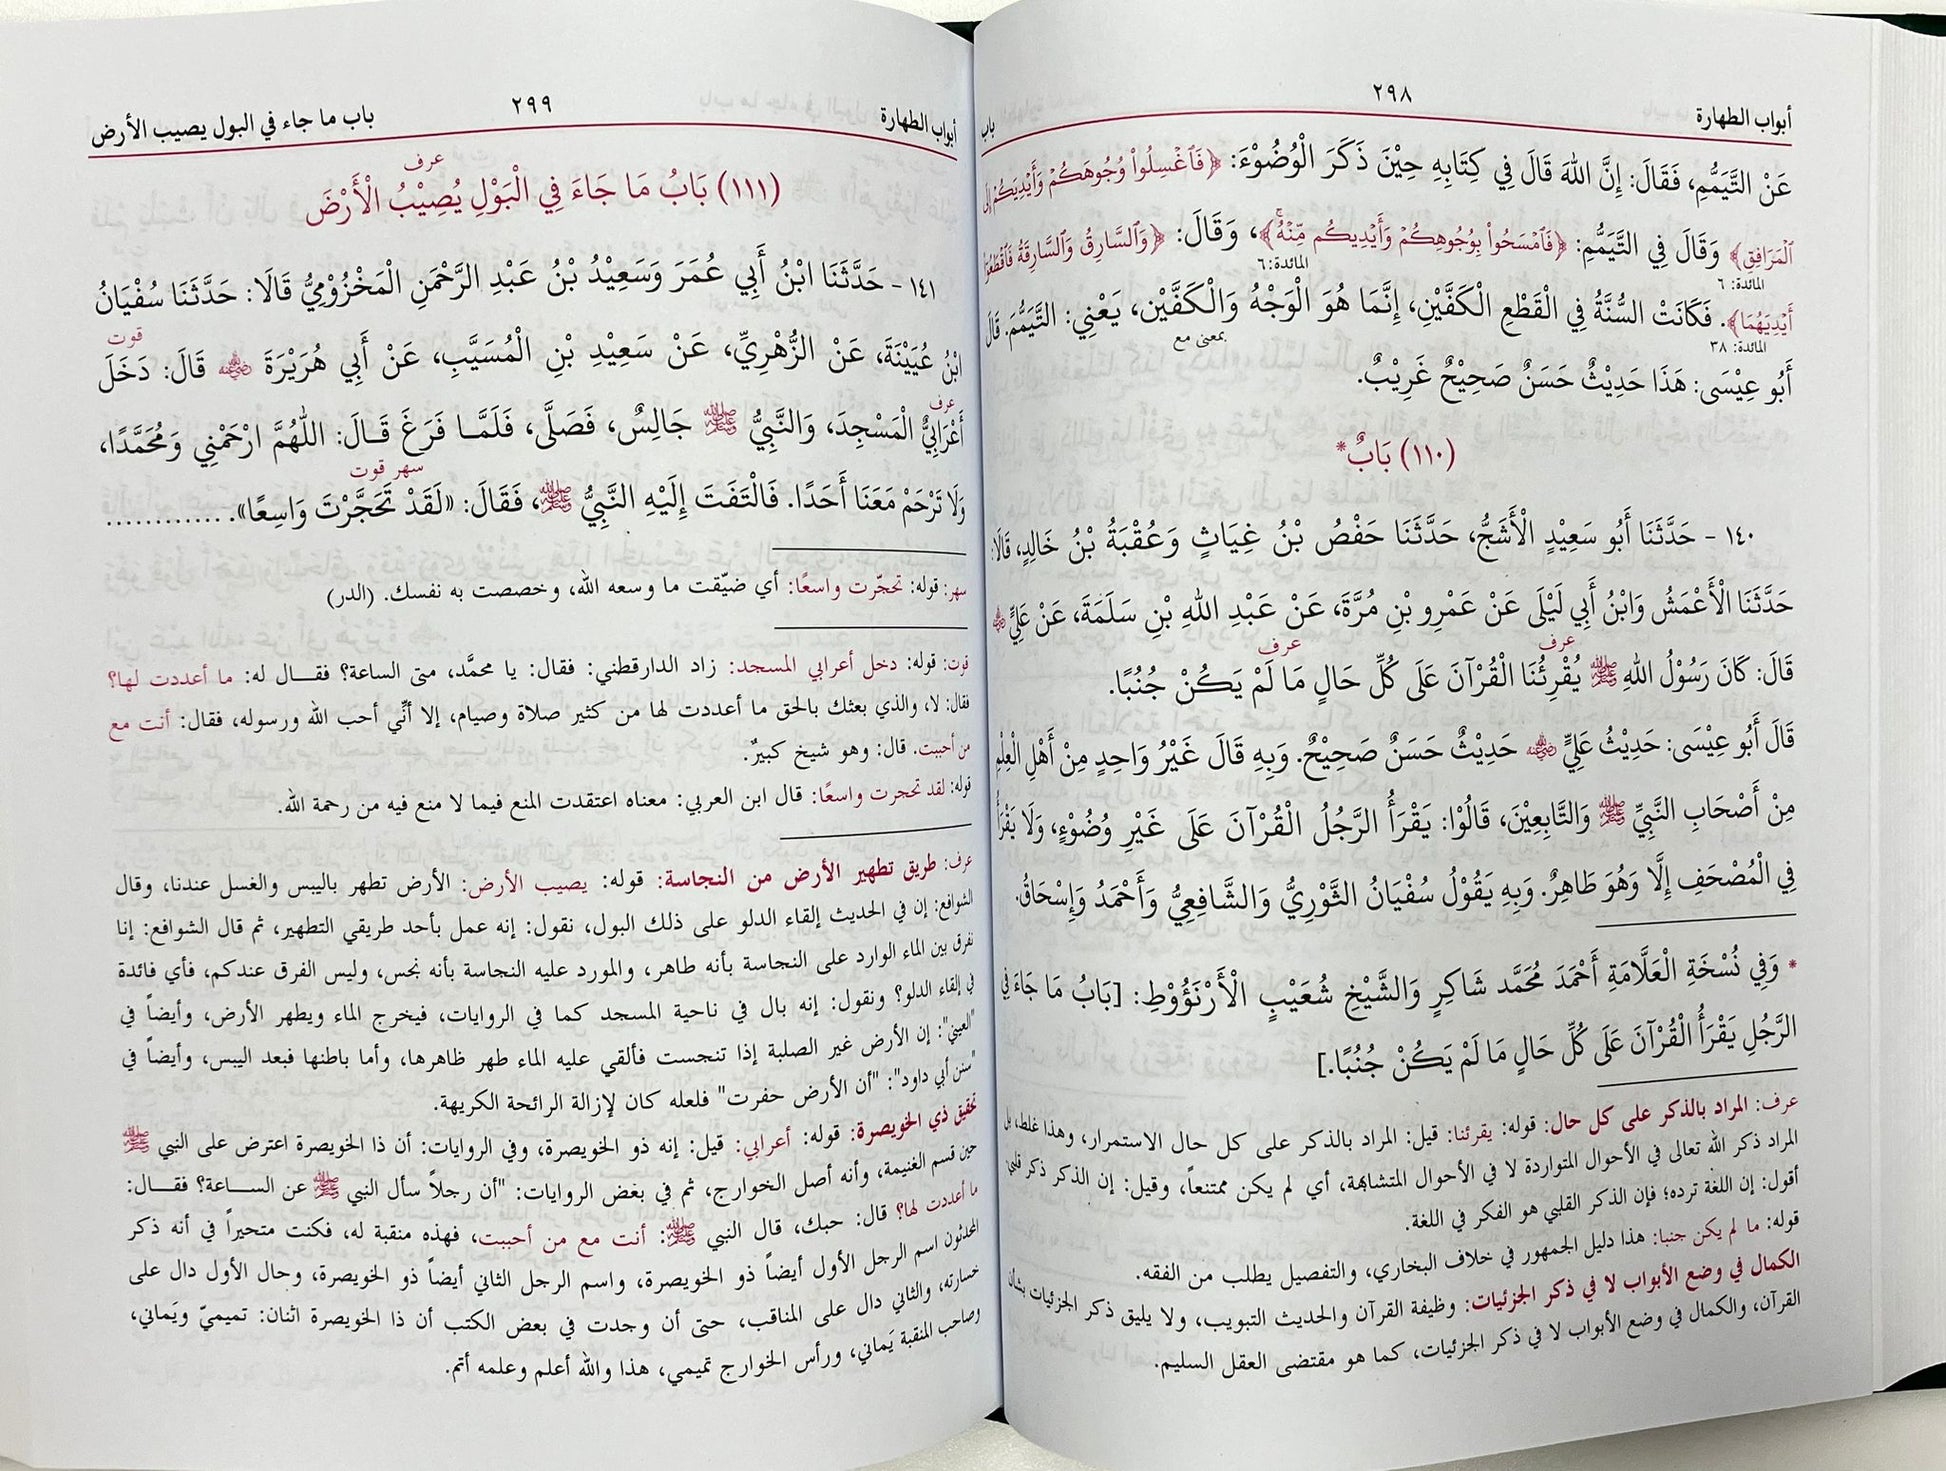 أبواب الطهارة
٢٩٨
باب
عَنْ التَّيَمُّمِ، فَقَالَ: إِنَّ اللهَ قَالَ فِي كِتَابِهِ حِيْنَ ذَكَرَ الْوُضُوْءَ: ﴿فَٱغْسِلُوا۟ وُجُوهَكُمْ وَأَيْدِيَكُمْ إِلَى
ٱلْمَرَافِقِ﴾ وَقَالَ فِي التَّيَمُّمِ: ﴿فَٱمْسَحُوا۟ بِوُجُوهِكُمْ وَأَيْدِيكُم مِّنْهُ﴾، وَقَالَ: ﴿وَٱلسَّارِقُ وَٱلسَّارِقَةُ فَٱقْطَعُوٓا۟
المائدة: ٦
المائدة: ٦
أَيْدِيَهُمَا﴾. فَكَانَتْ السُّنَّةُ فِي الْقَطْعِ الْكَفَّيْنِ، إِنَّمَا هُوَ الْوَجْهُ وَالْكَفَّيْنِ، يَعْنِي: التَّيَمُّمَ. قَالَ
المائدة: ٣٨
بمعنى مع
أَبُو عِيْسَى: هَذَا حَدِيْثٌ حَسَنٌ صَحِيْحٌ غَرِيْبٌ.
(١١٠) بَابٌ*
١٤٠ - حَدَّثَنَا أَبُو سَعِيْدٍ الْأَشَجُّ، حَدَّثَنَا حَفْصُ بْنُ غِيَاثٍ وَعُقْبَةُ بْنُ خَالِدٍ، قَالَا:
حَدَّثَنَا الْأَعْمَشُ وَابْنُ أَبِي لَيْلَى عَنْ عَمْرِو بْنِ مُرَّةَ، عَنْ عَبْدِ اللهِ بْنِ سَلَمَةَ، عَنْ عَلِيٍّ رضي الله عنه
عرف
عرف
قَالَ: كَانَ رَسُوْلُ اللهِ ﷺ يُقْرِئُنَا الْقُرْآنَ عَلَى كُلِّ حَالٍ مَا لَمْ يَكُنْ جُنُبًا.
قَالَ أَبُو عِيْسَى: حَدِيْثُ عَلِيٍّ رضي الله عنه حَدِيْثٌ حَسَنٌ صَحِيْحٌ. وَبِهِ قَالَ غَيْرُ وَاحِدٍ مِنْ أَهْلِ الْعِلْمِ
مِنْ أَصْحَابِ النَّبِيِّ ﷺ وَالتَّابِعِيْنَ، قَالُوْا: يَقْرَأُ الرَّجُلُ الْقُرْآنَ عَلَى غَيْرِ وُضُوْءٍ، وَلَا يَقْرَأُ
فِي الْمُصْحَفِ إِلَّا وَهُوَ طَاهِرٌ. وَبِهِ يَقُوْلُ سُفْيَانُ الثَّوْرِيُّ وَالشَّافِعِيُّ وَأَحْمَدُ وَإِسْحَاقُ.
* وَفِي نُسْخَةِ الْعَلَّامَةِ أَحْمَدَ مُحَمَّد شَاكِرٍ وَالشَّيْخِ شُعَيْبٍ الْأَرْنَؤُوْطِ: [بَابُ مَا جَاءَ فِي
الرَّجُلِ يَقْرَأُ الْقُرْآنَ عَلَى كُلِّ حَالٍ مَا لَمْ يَكُنْ جُنُبًا.]
عرف: المراد بالذكر على كل حال: قوله: يقرئنا: قيل: المراد بالذكر على كل حال الاستمرار، وهذا غلط، بل
المراد ذكر الله تعالى في الأحوال المتواردة لا في الأحوال المتشابهة، أي لم يكن ممتنعاً، وقيل: إن الذكر ذكر قلبي
أقول: إن اللغة ترده؛ فإن الذكر القلبي هو الفكر في اللغة.
قوله: ما لم يكن جنبا: هذا دليل الجمهور في خلاف البخاري، والتفصيل يطلب من الفقه.
الكمال في وضع الأبواب لا في ذكر الجزئيات: وظيفة القرآن والحديث التبويب، ولا يليق ذكر الجزئيات بشأن
القرآن، والكمال في وضع الأبواب لا في ذكر الجزئيات، كما هو مقتضى العقل السليم.
أبواب الطهارة
٢٩٩
باب ما جاء في البول يصيب الأرض
عرف
(١١١) بَابُ مَا جَاءَ فِي الْبَوْلِ يُصِيْبُ الْأَرْضَ
١٤١ - حَدَّثَنَا ابْنُ أَبِي عُمَرَ وَسَعِيْدُ بْنُ عَبْدِ الرَّحْمَنِ الْمَخْزُوْمِيُّ قَالَا: حَدَّثَنَا سُفْيَانُ
قوت
ابْنُ عُيَيْنَةَ، عَنْ الزُّهْرِيِّ، عَنْ سَعِيْدِ بْنِ الْمُسَيَّبِ، عَنْ أَبِي هُرَيْرَةَ رضي الله عنه قَالَ: دَخَلَ
عرف
أَعْرَابِيٌّ الْمَسْجِدَ، وَالنَّبِيُّ ﷺ جَالِسٌ، فَصَلَّى، فَلَمَّا فَرَغَ قَالَ: اللّٰهُمَّ ارْحَمْنِي وَمُحَمَّدًا،
سهر قوت
وَلَا تَرْحَمْ مَعَنَا أَحَدًا. فَالْتَفَتَ إِلَيْهِ النَّبِيُّ ﷺ، فَقَالَ: «لَقَدْ تَحَجَّرْتَ وَاسِعًا». .............
سهر: قوله: تحجّرت واسعًا: أي ضيّقت ما وسعه الله، وخصصت به نفسك. (الدر)
قوت: قوله: دخل أعرابي المسجد: زاد الدارقطني: فقال: يا محمَّد، متى الساعة؟ فقال له: ما أعددت لها؟
فقال: لا، والذي بعثك بالحق ما أعددت لها من كثير صلاة وصيام، إلا أنِّي أحب الله ورسوله، فقال: أنت مع
من أحببت. قال: وهو شيخ كبيرٌ.
قوله: لقد تحجرت واسعًا: قال ابن العربي: معناه اعتقدت المنع فيما لا منع فيه من رحمة الله.
عرف: طريق تطهير الأرض من النجاسة: قوله: يصيب الأرض: الأرض تطهر باليبس والغسل عندنا، وقال
الشوافع: إن في الحديث إلقاء الدلو على ذلك البول، نقول: إنه عمل بأحد طريقي التطهير، ثم قال الشوافع: إنا
نفرق بين الماء الوارد على النجاسة بأنه طاهر، والمورد عليه النجاسة بأنه نجس، وليس الفرق عندكم، فأي فائدة
في إلقاء الدلو؟ ونقول: إنه بال في ناحية المسجد كما في الروايات، فيخرج الماء ويطهر الأرض، وأيضاً في
"العيني": إن الأرض غير الصلبة إذا تنجست فألقي عليه الماء طهر ظاهرها، وأما باطنها فبعد اليبس، وأيضاً في
"سنن أبي داود": "أن الأرض حفرت" فلعله كان لإزالة الرائحة الكريهة.
تحقيق ذي الخويصرة: قوله: أعرابي: قيل: إنه ذو الخويصرة، وفي الروايات: أن ذا الخويصرة اعترض على النبي ﷺ
حين قسم الغنيمة، وأنه أصل الخوارج، ثم في بعض الروايات: "أن رجلاً سأل النبي ﷺ عن الساعة؟ فقال:
ما أعددت لها؟ قال: حبك، قال النبي ﷺ: أنت مع من أحببت، فهذه منقبة له، فكنت متحيراً في أنه ذكر
المحدثون اسم الرجل الأول أيضاً ذو الخويصرة، واسم الرجل الثاني أيضاً ذو الخويصرة، وحال الأول دال على
خسارته، والثاني دال على المناقب، حتى أن وجدت في بعض الكتب أن ذا الخويصرة اثنان: تميميّ ويَماني،
وصاحب المنقبة يَماني، ورأس الخوارج تميمي، هذا والله أعلم وعلمه أتم.